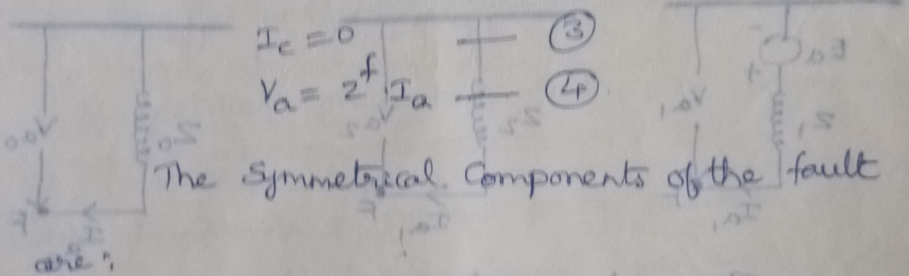 I_c = 0 — ③
V_a = Z^f I_a — ④
The Symmetrical Components of the fault
are,